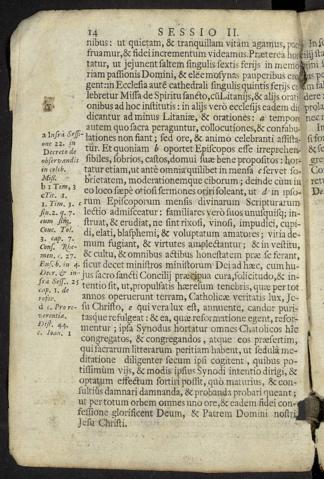 14 SESSIO II.
nibus: ut quietam, & tranquillam vitam agamus, pace
fruamur, & fidei incrementum videamus. Præterea hor-
tatur, ut jejunent saltem singulis sextis ferijs in memo-
riam passionis Domini, & eleemosynas pauperibus ero-
gent: in Ecclesia autẽ cathedrali singulis quintis ferijs ce-
lebretur Missa de Spiritu sancto, cũ Litanijs, & alijs orati-
onibus ad hoc institutis: in alijs verò ecclesijs eadem di-
dicantur ad minus Litaniæ, & orationes: a tempore
autem quo sacra peraguntur, collocutiones, & confabu-
lationes non fiant; sed ore, & animo celebranti assista-
tur. Et quoniam b oportet Episcopos esse irreprehen-
sibiles, sobrios, castos, domui suæ bene propositos: hor-
tatur etiam, ut ante omnia quilibet in mensa c servet so-
brietatem, moderationemque ciborum; deinde cùm in
eo loco sæpè otiosi sermones oriri soleant, ut d in ipso-
rum Episcoporum mensis divinarum Scripturarum
lectio admisceatur: familiares verò suos unusquisq; in-
struat, & erudiat, ne sint rixosi, vinosi, impudici, cupi-
di, elati, blasphemi, & voluptatum amatores; vitia de-
mum fugiant, & virtutes amplectantur; & in vestitu,
& cultu, & omnibus actibus honestatem præ se ferant,
sicut decet ministros ministrorum Dei ad hæc, cum hu-
jus sacro sancti Concilij præcipua cura, solicitudo, & in-
tentio sit, ut, propulsatis hæresum tenebris, quæ per tot
annos operuerunt terram, Catholicæ veritatis lux, Je-
su Christo, e qui vera lux est, annuente, candor puri-
tasque refulgeat: & ea, quæ reformatione egent, refor-
mentur; ipsa Synodus hortatur omnes Chatolicos hîc
congregatos, & congregandos, atque eos præsertim,
qui sacrarum litterarum peritiam habent, ut sedulâ me-
ditatione diligenter secum ipsi cogitent, quibus po-
tissimùm vijs, & modis ipsius Synodi intentio dirigi, &
optatum effectum sortiri possit, quò maturius, & con-
sultiùs damnari damnanda, & probanda probari queant;
ut per totum orbem omnes uno ore, & eadem fidei con-
fessione glorificent Deum, & Patrem Domini nostri
Jesu Christi.
a Infrà Sess-
one 22. in
Decreto de
observandis
in celeb.
Miss.
b 1 Tem, 3
c Tit. 1.
1. Tim. 3. c
fin. 2. q. 7.
cum sing.
Conc. Tol.
3. cap. 7.
Conf. Rhe-
men. c. 27.
Decr. & in-
fra Sess. 25
cap. 1. de
refor.
d c. Pro re-
verentia.
Dist. 44.
e Ioan. 1